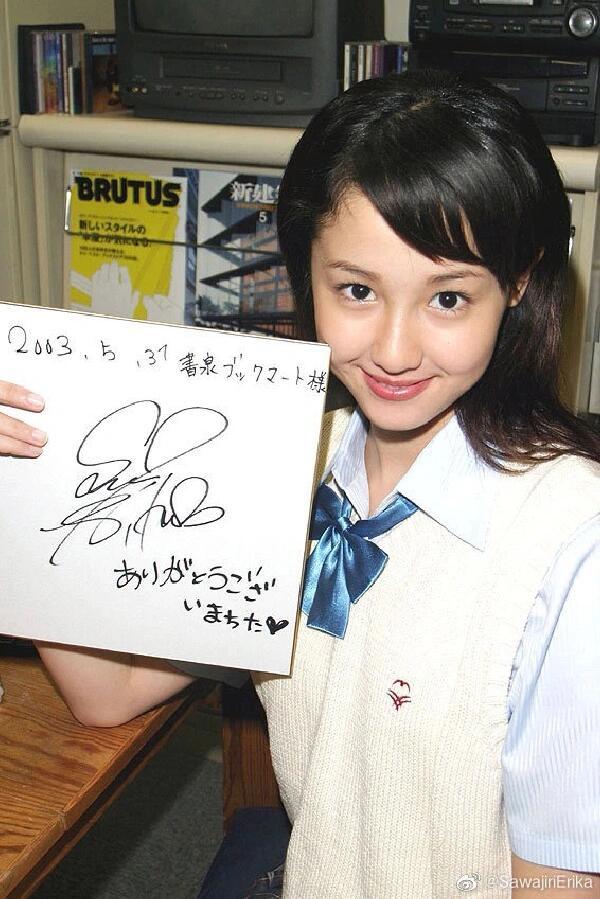 BRUTUS
新しいスタイルの
新建
5
2003.5.31 書泉ブックマート様
ありがとうござ
いまちた♥
@SawajiriErika